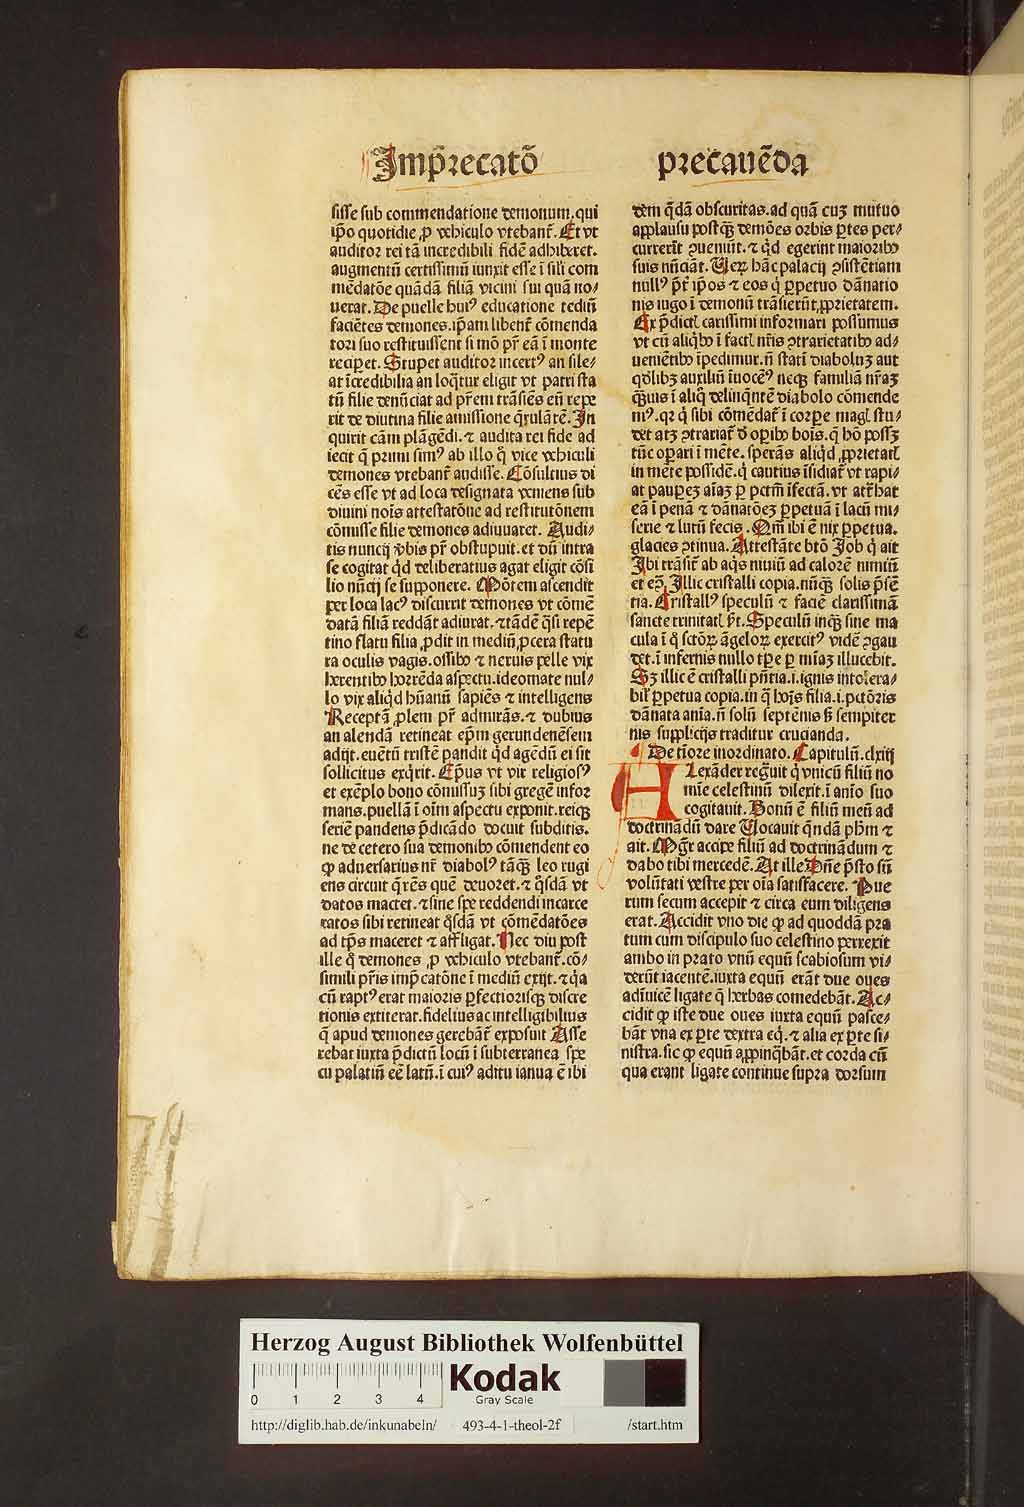 Imp̄recatō p̄recauēda
sisse sub commendatione demonum. qui
ip̄o quotidie ꝓ vehiculo vtebant̄. Et vt
auditor rei tā incredibili fidē adhiberet.
augmentū certissimū iunxit esse ī sili com
mēdatōe quādā filiā vicini sui quā no⸗
uerat. De puelle huiꝰ educatione tediū
faciētes demones. ip̄am libent̄ cōmenda
tori suo restituissent si mō pr̄ eā ī monte
reciperet. Stupet auditor incertꝰ an sile⸗
at īcredibilia an loq̄tur eligit vt patri sta
tū filie denūciat ad pr̄em trāsiēs eū repe
rit de diutina filie amissione q̄rulātē. In
quirit cām plāgēdi. ⁊ audita rei fide ad
iecit q̄ primi simꝰ ab illo q̄ vice vehiculi
demones vtebant̄ audisse. Cōsultius di
cēs esse vt ad loca designata veniens sub
diuini nois attestatōne ad restitutōnem
cōmisse filie demones adiuuaret. Audi⸗
tis nuncij v̄bis pr̄ obstupuit. et dū intra
se cogitat qd̄ deliberatius agat eligit cōsi
lio nūcij se supponere. Mōtem ascendit
per loca lacꝰ discurrit demones vt cōmē
datā filiā reddāt adiurat. ⁊ tādē q̄si repē
tino flatu filia ꝓdit in mediū ꝓcera statu
ra oculis vagis. ossibꝰ ⁊ neruis pelle vix
herentibꝰ horrēda aspectu. ideomate nul⸗
lo vix aliqd̄ hūanū sapiēs ⁊ intelligens
Receptā ꝓlem pr̄ admirās. ⁊ dubius
an alendā retineat ep̄m gerundenēsem
adijt. euētū tristē pandit qd̄ agēdū ei sit
sollicitus exq̄rit. Ep̄us vt vir religiosꝰ
et exēplo bono cōmissuꝫ sibi gregē infor
mans. puellā ī oim̄ aspectu exponit. reiqꝫ
seriē pandens p̄dicādo docuit subditis.
ne de cetero sua demonibꝰ cōmendent eo
ꝙ aduersarius nr̄ diabolꝰ tāqꝫ leo rugi
ens circuit q̄rēs quē deuoret. ⁊ q̄sdā vt
datos mactet. ⁊ sine spe reddendi incarce
ratos sibi retineat q̄sdā vt cōmēdatōes
ad tp̄s maceret ⁊ affligat. Nec diu post
ille q̄ demones ꝓ vehiculo vtebant̄. cō⸗
simili pr̄is impcatōne ī mediū exijt. ⁊ q̄a
cū raptꝰ erat maioris ꝑfectiorisqꝫ discre
tionis extiterat. fidelius ac intelligibilius
q̄ apud demones gerebāt̄ exposuit Asse
rebat iuxta p̄dictū locū ī subterranea spe
cu palatiū eē latū. ī cuiꝰ aditu ianua ē ibi
dem q̄dā obscuritas. ad quā cuꝫ mutuo
applausu postqꝫ demōes orbis ꝑtes per⸗
currerit ꝯueniūt. ⁊ qd̄ egerint maioribꝰ
suis nūciāt. Veꝝ hāc palacij ꝯsistētiam
nullꝰ pt̄ ip̄os ⁊ eos q̄ ꝑpetuo dānatio
nis iugo ī demonū trāsierūt ꝓprietatem.
Ex p̄dictꝭ carissimi informari possumus
vt cū aliqbꝰ ī factꝭ nr̄is ꝯtrarietatibꝰ ad⸗
uenientibꝰ īpedimur. nō statī diaboluꝫ aut
qd̄libꝫ auxiliū īuocēꝰ neqꝫ familiā nr̄aꝫ
qꝫuis ī aliq̄ delinqntē diabolo cōmende
mꝰ. qꝛ q̄ sibi cōmēdat̄ ī corpe magꝭ stu⸗
det atꝫ ꝯtrariat̄ ī oꝑibꝰ bois. q̄ hō possꝫ
tūc oꝑari ī mēte. sperās aliqd̄ ꝓprietatꝭ
in mēte possidē. q̄ cautius īsidiat̄ vt rapi⸗
at paupeꝫ aīaꝫ ꝑ pctm̄ īfectā. vt attr̄hat
eā ī penā ⁊ dānatōeꝫ ꝑpetuā ī lacū mi⸗
serie ⁊ lutū fecis. Qm̄ ibi ē nix ꝑpetua.
glacies ꝯtinua. Attestāte btō Job q̄ ait
Ibi trāsit̄ ab aq̄s niuiū ad calorē nimiū
et eō. Illic cristalli copia. nūqꝫ solis p̄sē
tia. Cristallꝰ speculū ⁊ faciē clarissimā
sancte trinitatꝭ p̄t. Speculū inqꝫ sine ma
cula ī q̄ sctōꝝ āgeloꝝ exercitꝰ vidē ꝯgau
det. ī infernis nullo tp̄e ꝑ mīaꝫ illucebit.
Sꝫ illic ē cristalli pn̄tia. i. ignis intolera⸗
bilꝭ ꝑpetua copia. in q̄ hoīs filia. i. pctōris
dānata anīa. nō solū septēnis sꝫ sempiter
nis supplicijs traditur crucianda.
De tiōre inordinato. Capitulū. clxiij
Alexāder regnuit q̄ vnicū filiū no
mīe celestinū dilexit. ī anīo suo
cogitauit. Bonū ē filiū meū ad
doctrinādū dare Vocauit q̄ndā phm̄ ⁊
ait. Mgr̄ accipe filiū ad doctrinādum ⁊
dabo tibi mercedē. At ille Dn̄e p̄sto sū
volūtati vestre per oīa satisfacere. Pue
rum secum accepit ⁊ circa eum diligens
erat. Accidit vno die ꝙ ad quoddā pra
tum cum discipulo suo celestino perrexit
ambo in prato vnū equū scabiosum vi⸗
derūt iacentē. iuxta equū erāt due oues
adīuicē ligate q̄ herbas comedebāt. Ac⸗
cidit ꝙ iste due oues iuxta equū pasce⸗
bāt vna ex ꝑte dextra eq̄. ⁊ alia ex ꝑte si⸗
nistra. sic ꝙ equū appinq̄bāt. et corda cū
qua erant ligate continue supra dorsum
Herzog August Bibliothek Wolfenbüttel
0 1 2 3 4
Kodak
Gray Scale
http://diglib.hab.de/inkunabeln/ 493-4-1-theol-2f /start.htm